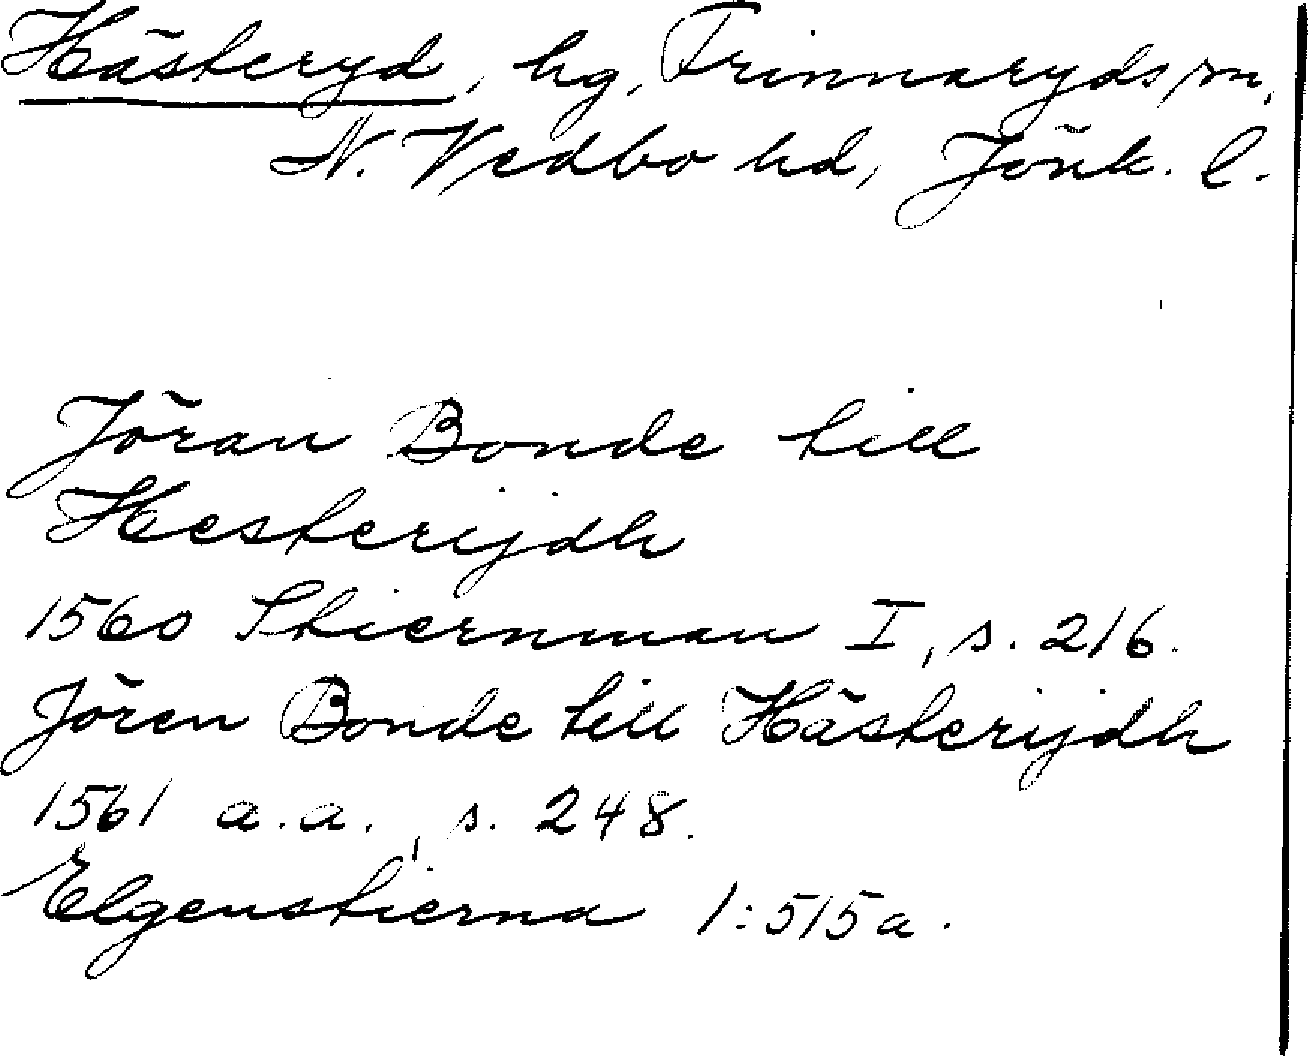 Hästeryd, hg, Frinnaryds sn,
N. Vedbo hd, Jönk. l.
Jöran Bonde till
Hesterijdh
1560 Stiernman I, s. 216.
Jören Bonde till Hästerijdh
1561 a.a., s. 248.
Elgenstierna 1:515a.